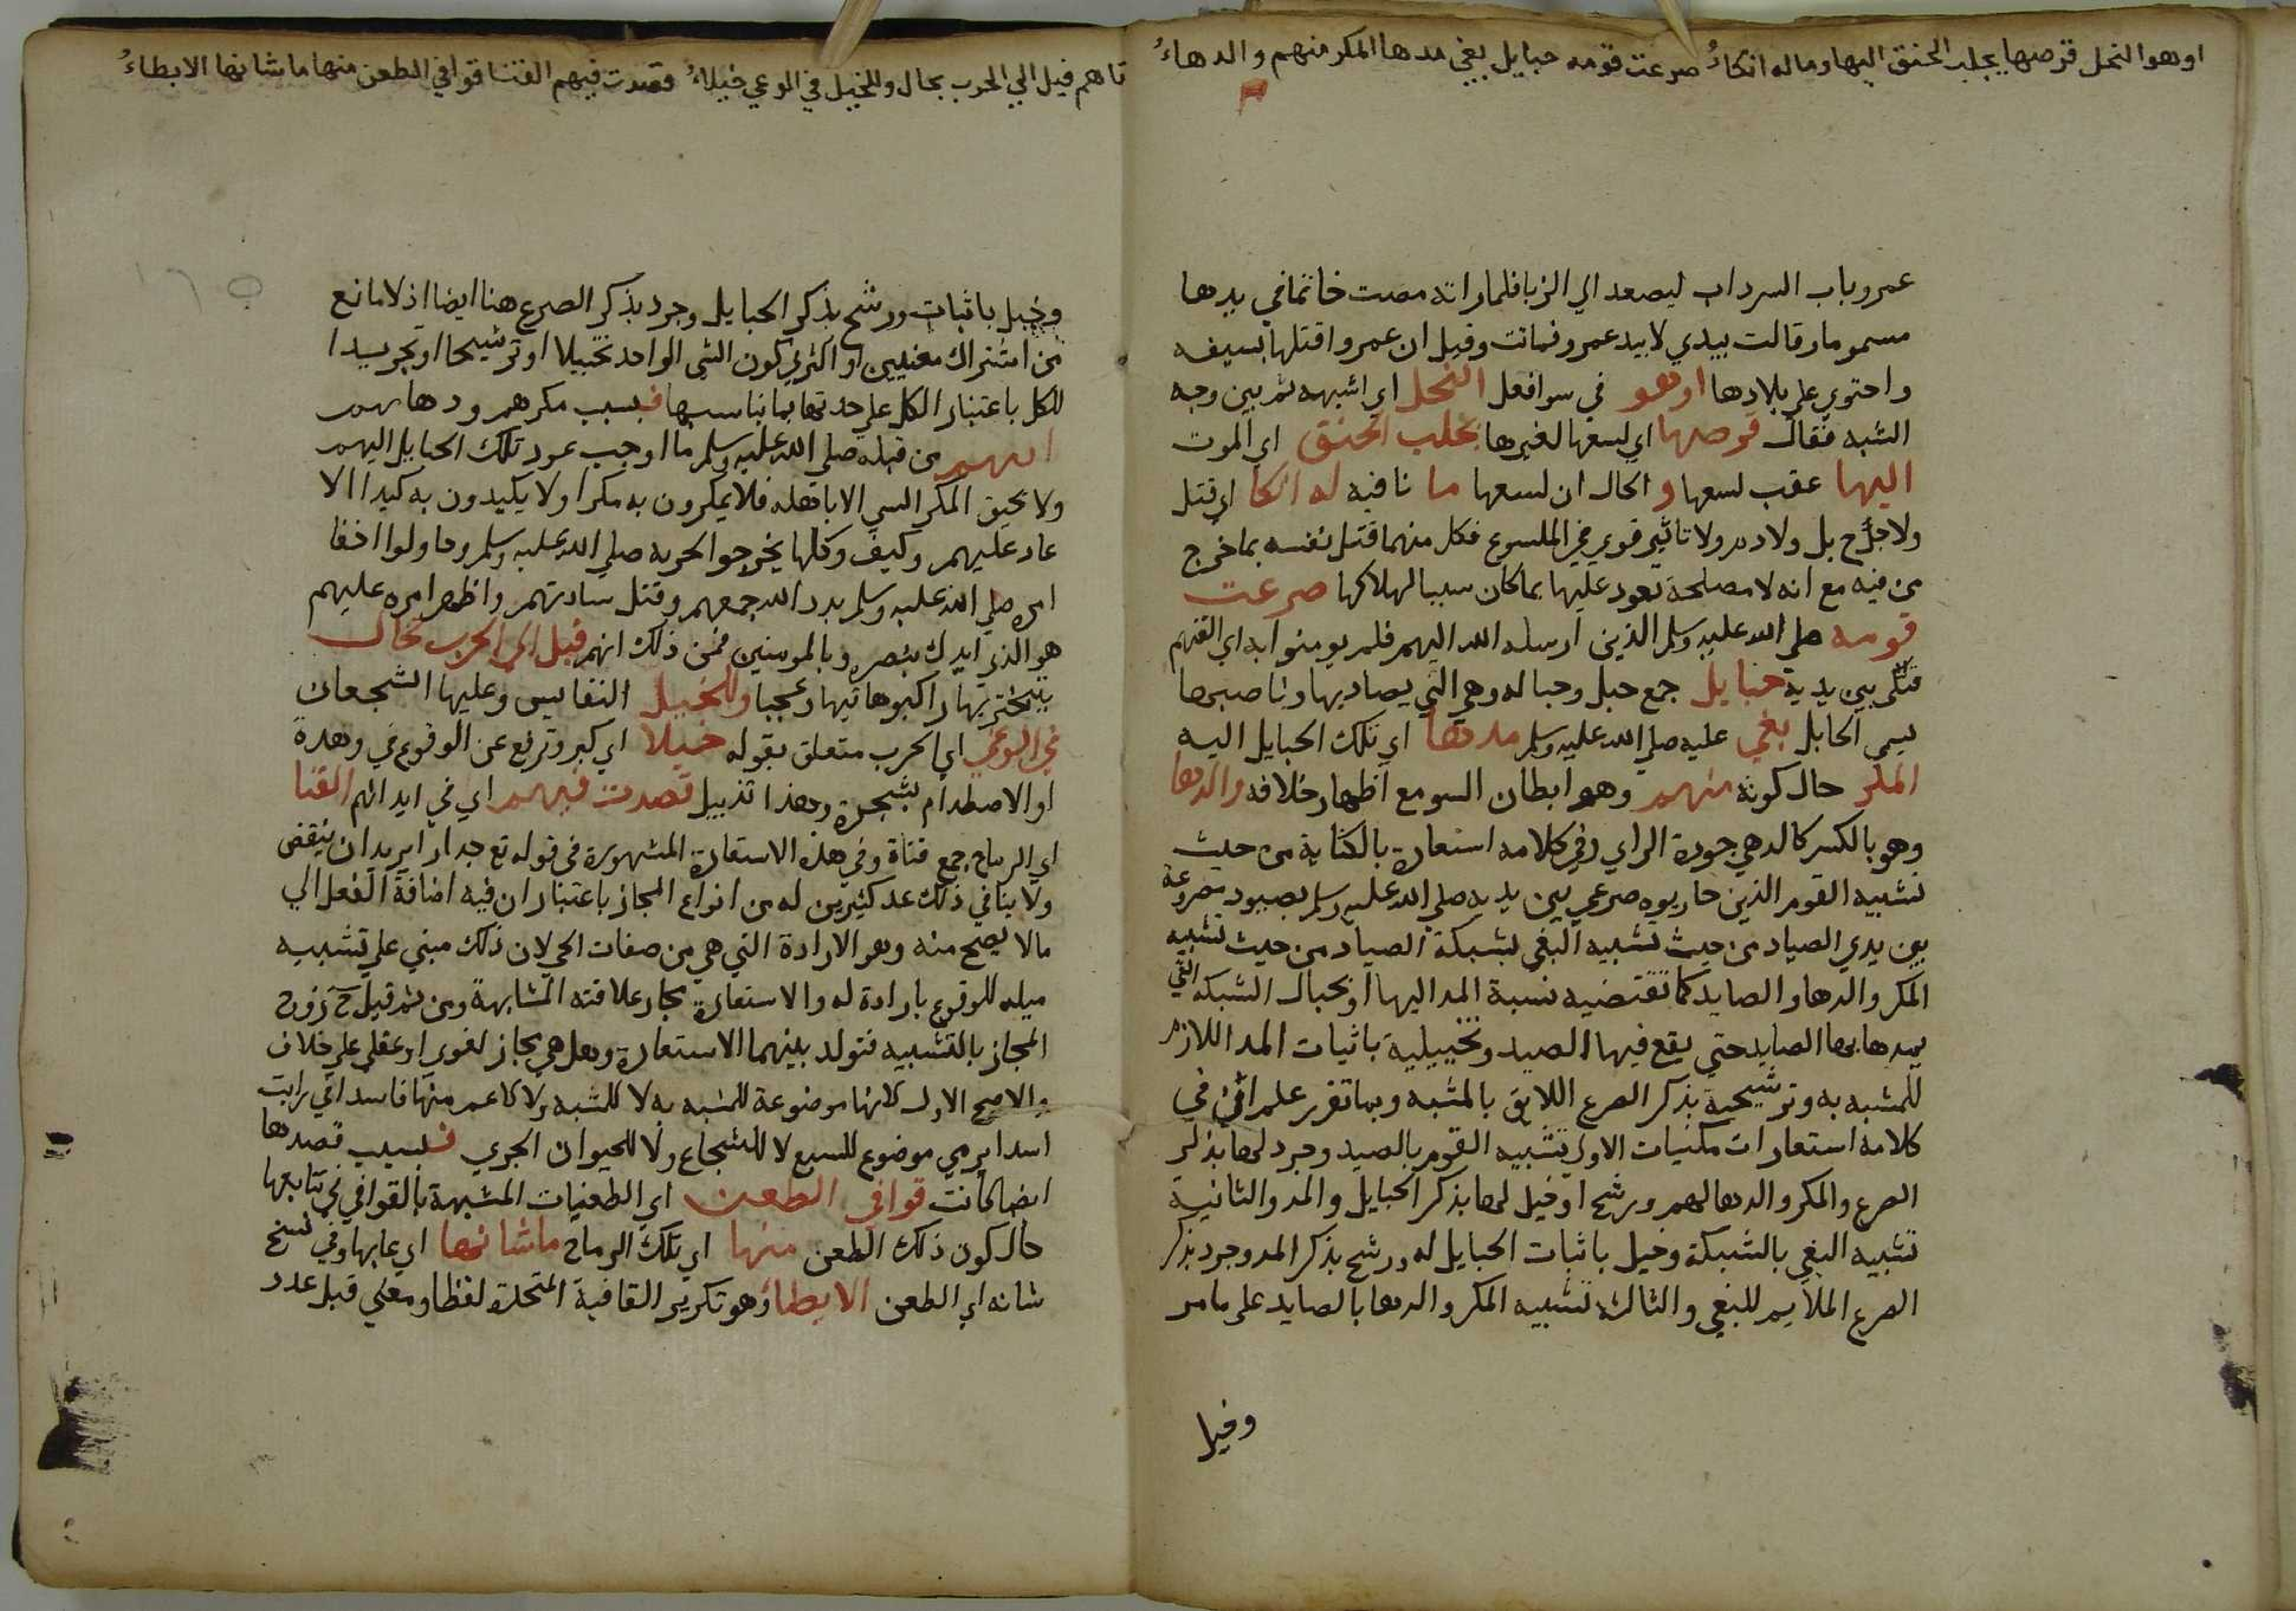 او هو النحل قرصها يجلب الحتف اليها وماله انكاءُ صرعت قومه حبايل بغي مدها المكر منهم والدهاءُ
عمرو باب السرداب ليصعد الي الزبا فلما راته مصت خاتما في يدها
مسموما وقالت بيدي لا بيد عمرو فماتت وقيل ان عمروا قتلها بسيفه
واحتوي علي بلادها او هو في سوا فعل النحل اي اشبهه ثم بين وجه
الشبه فقال قرصها اي لسعها لغيرها يجلب الحتف اي الموت
اليها عقب لسعها و الحال ان لسعها ما نافيه له انكا اي قتل
ولا جرح بل ولا دم ولا تاثير قوي في الملسوع فكل منهما قتل نفسه بما خرج
من فيه مع انه لا مصلحة تعود عليها بما كان سببا لهلاكها صرعت
قومه صلي الله عليه وسلم الذين ارسله الله اليهم فلم يومنوا به اي القتهم
قتلي بين يديه حبايل جمع حبل وحباله وهي التي يصاد بها وناصبها
يسمي الحابل بغي عليه صلي الله عليه وسلم مدها اي تلك الحبايل اليه
المكر حال كونه منهم وهو ابطان السو مع اظهار خلافه والدها
وهو بالكسر كالدهي جودة الراي وفي كلامه استعارة بالكناية من حيث
تشبيه القوم الذين حاربوه صرعي بين يديه صلي الله عليه وسلم بصيود مصروعة
بين يدي الصياد من حيث تشبيه البغي بشبكة الصياد من حيث تشبيه
المكر والدها والصايد كما تقتضيه نسبة المد اليها او بحبال الشبكه التي
يمدها بها الصايد حتي يقع فيها الصيد وتخييلية باثبات المد اللازم
للمشبه به وترشيحية بذكر الصرع اللايق بالمشبه وبما تقرر علم ان في
كلامه استعارات مكنيات الاولي تشبيه القوم بالصيد وجرد لها بذكر
الصرع والمكر والدها لهم ورشح او خيل لها بذكر الحبايل والمد والثانية
تشبيه البغي بالشبكة وخيل باثبات الحبايل له ورشح بذكر المد وجرد بذكر
الصرع الملايم للبغي والثالثه تشبيه المكر والدها بالصايد علي ما مر
وخيل
تاهم خيل الي الحرب تختال وللخيل في الوعي خيلاءُ قصدت فيهم القنا قوافي الطعن منها ما شانها الايطاءُ
وخيل باثبات ورشح بذكر الحبايل وجرد بذكر الصرع هنا ايضا اذ لا مانع
من اشتراك معنيين او اكثر في كون الشي الواحد تخييلا او ترشيحا او تجريدا
للكل باعتبار الكل علي حدتها بما يناسبها فبسبب مكرهم ودهايهم
اتتهم من قبله صلي الله عليه وسلم ما اوجب عود تلك الحبايل اليهم
ولا يحيق المكر السي الا باهله فلا يمكرون به مكرا ولا يكيدون به كيدا الا
عاد عليهم وكيف وكلها يخرجوا لحربه صلي الله عليه وسلم وحاولوا اخفا
امره صلي الله عليه وسلم بدد الله جمعهم وقتل سادتهم واظهر امره عليهم
هو الذي ايدك بنصره وبالمومنين فمن ذلك انهم خيل الي الحرب تختال
يتبختر بها راكبوها تيها وعجبا وللخيل النفايس وعليها الشجعان
في الوغي اي الحرب متعلق بقوله خيلا اي كبر وترفع عن الوقوع في وهدة
او الاصطدام بشجرة وهذا تذييل قصدت فيهم اي في ابدانهم القنا
اي الرماح جمع قناة وفي هذه الاستعارة المشهورة في قوله تع جدارا يريد ان ينقض
ولا ينافي ذلك عد كثيرين له من انواع المجاز باعتبار ان فيه اضافة الفعل الي
مالا يصح منه وهو الارادة التي هي من صفات الحي لان ذلك مبني علي تشبيه
ميله للوقوع بارادة له والاستعارة مجاز علاقته المشابهة ومن ثم قيل زوج
المجاز بالتشبيه فتولد بينهما الاستعارة وهل هي مجاز لغوي او عقلي علي خلاف
والاصح الاول لانها موضوعة للمشبه به لا للمشبه ولا لاعم منها فاسد في رايت
اسدا يرمي موضوع للسبع لا للشجاع ولا للحيوان الجري فبسبب قصدها
ايضا كانت قوافي الطعن اي الطعنات المشبهة بالقوافي في تتابعها
حال كون ذلك الطعن منها اي تلك الرماح ما شانها اي عابها وفي نسخ
شانه اي الطعن الايطا وهو تكرير القافية المتحدة لفظا ومعني قبل عدد